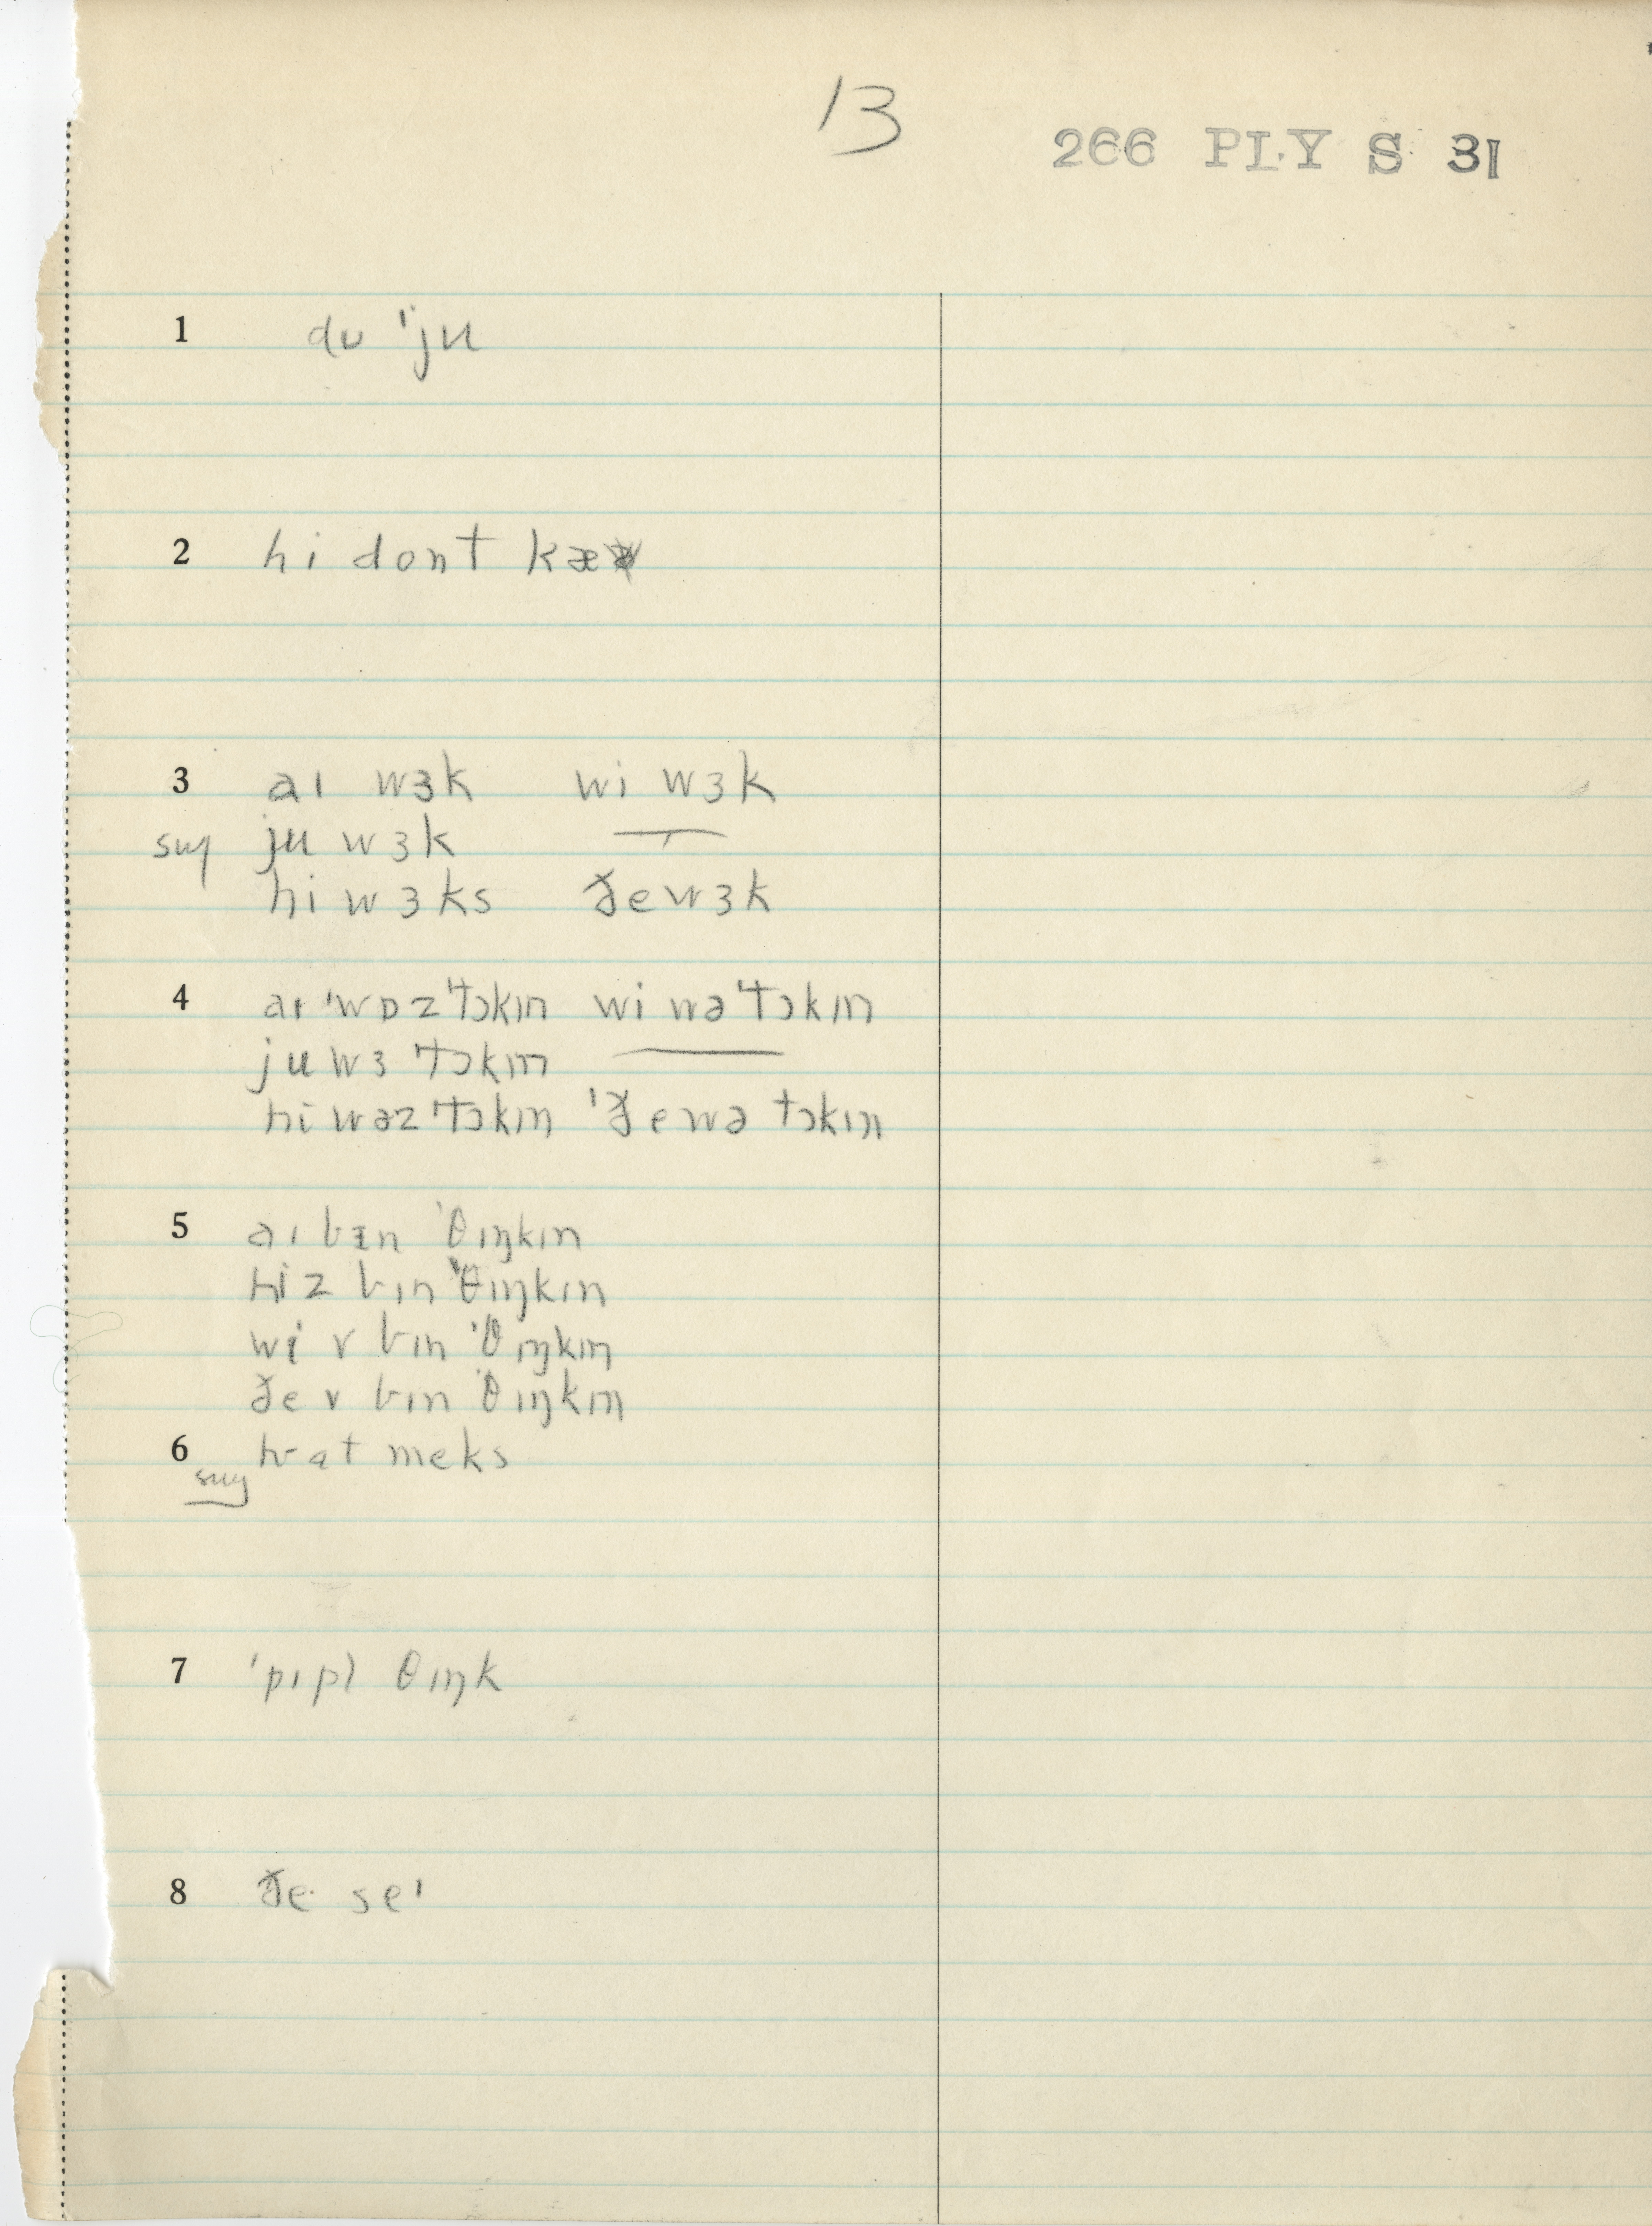 13
266 PLY S 31
1 dʊ 'ju
2 hi dont kæ
3 aɪ wɜk wi wɜk
sug ju wɜk —
hi wɜks ðe wɜk
4 aɪ 'wɒz 'tɔkɪn wi wə 'tɔkɪn
ju wɜ 'tɔkɪn —
hi wəz 'tɔkɪn 'ðe wə tɔkɪn
5 aɪ bɪn 'θɪŋkɪn
hiz bɪn 'θɪŋkɪn
wi v bɪn 'θɪŋkɪn
ðe v bɪn 'θɪŋkɪn
6 meks
sug
7 'pɪpl θɪŋk
8 ðe se'